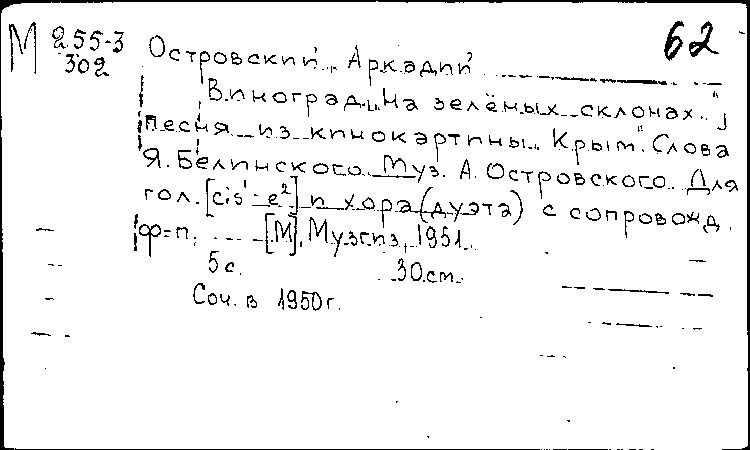 М 255-3
302
62
Островский, Аркадий
Виноград. „На зелёных склонах..."
Песня из кинокартины „Крым". Слова
Я. Белинского. Муз. А. Островского. Для
гол. [cis¹-e²] и хора (дуэта) с сопровожд.
ф-п. [М], Музгиз, 1951.
5 с. 30 cm.
Соч. в 1950 г.